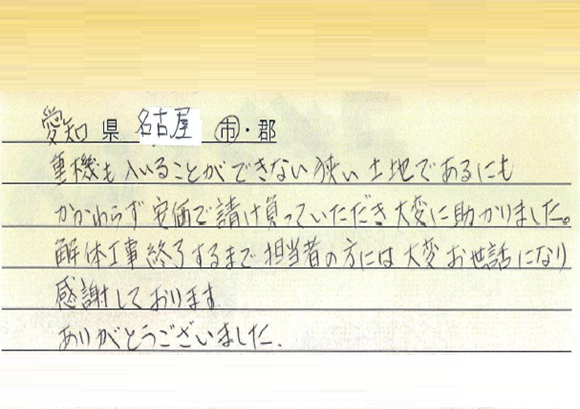 愛知 県 名古屋 市・郡
重機も入いることができない狭い土地であるにも
かかわらず安価で請け負っていただき大変に助かりました。
解体工事終了するまで担当者の方には大変お世話になり
感謝しております
ありがとうございました.